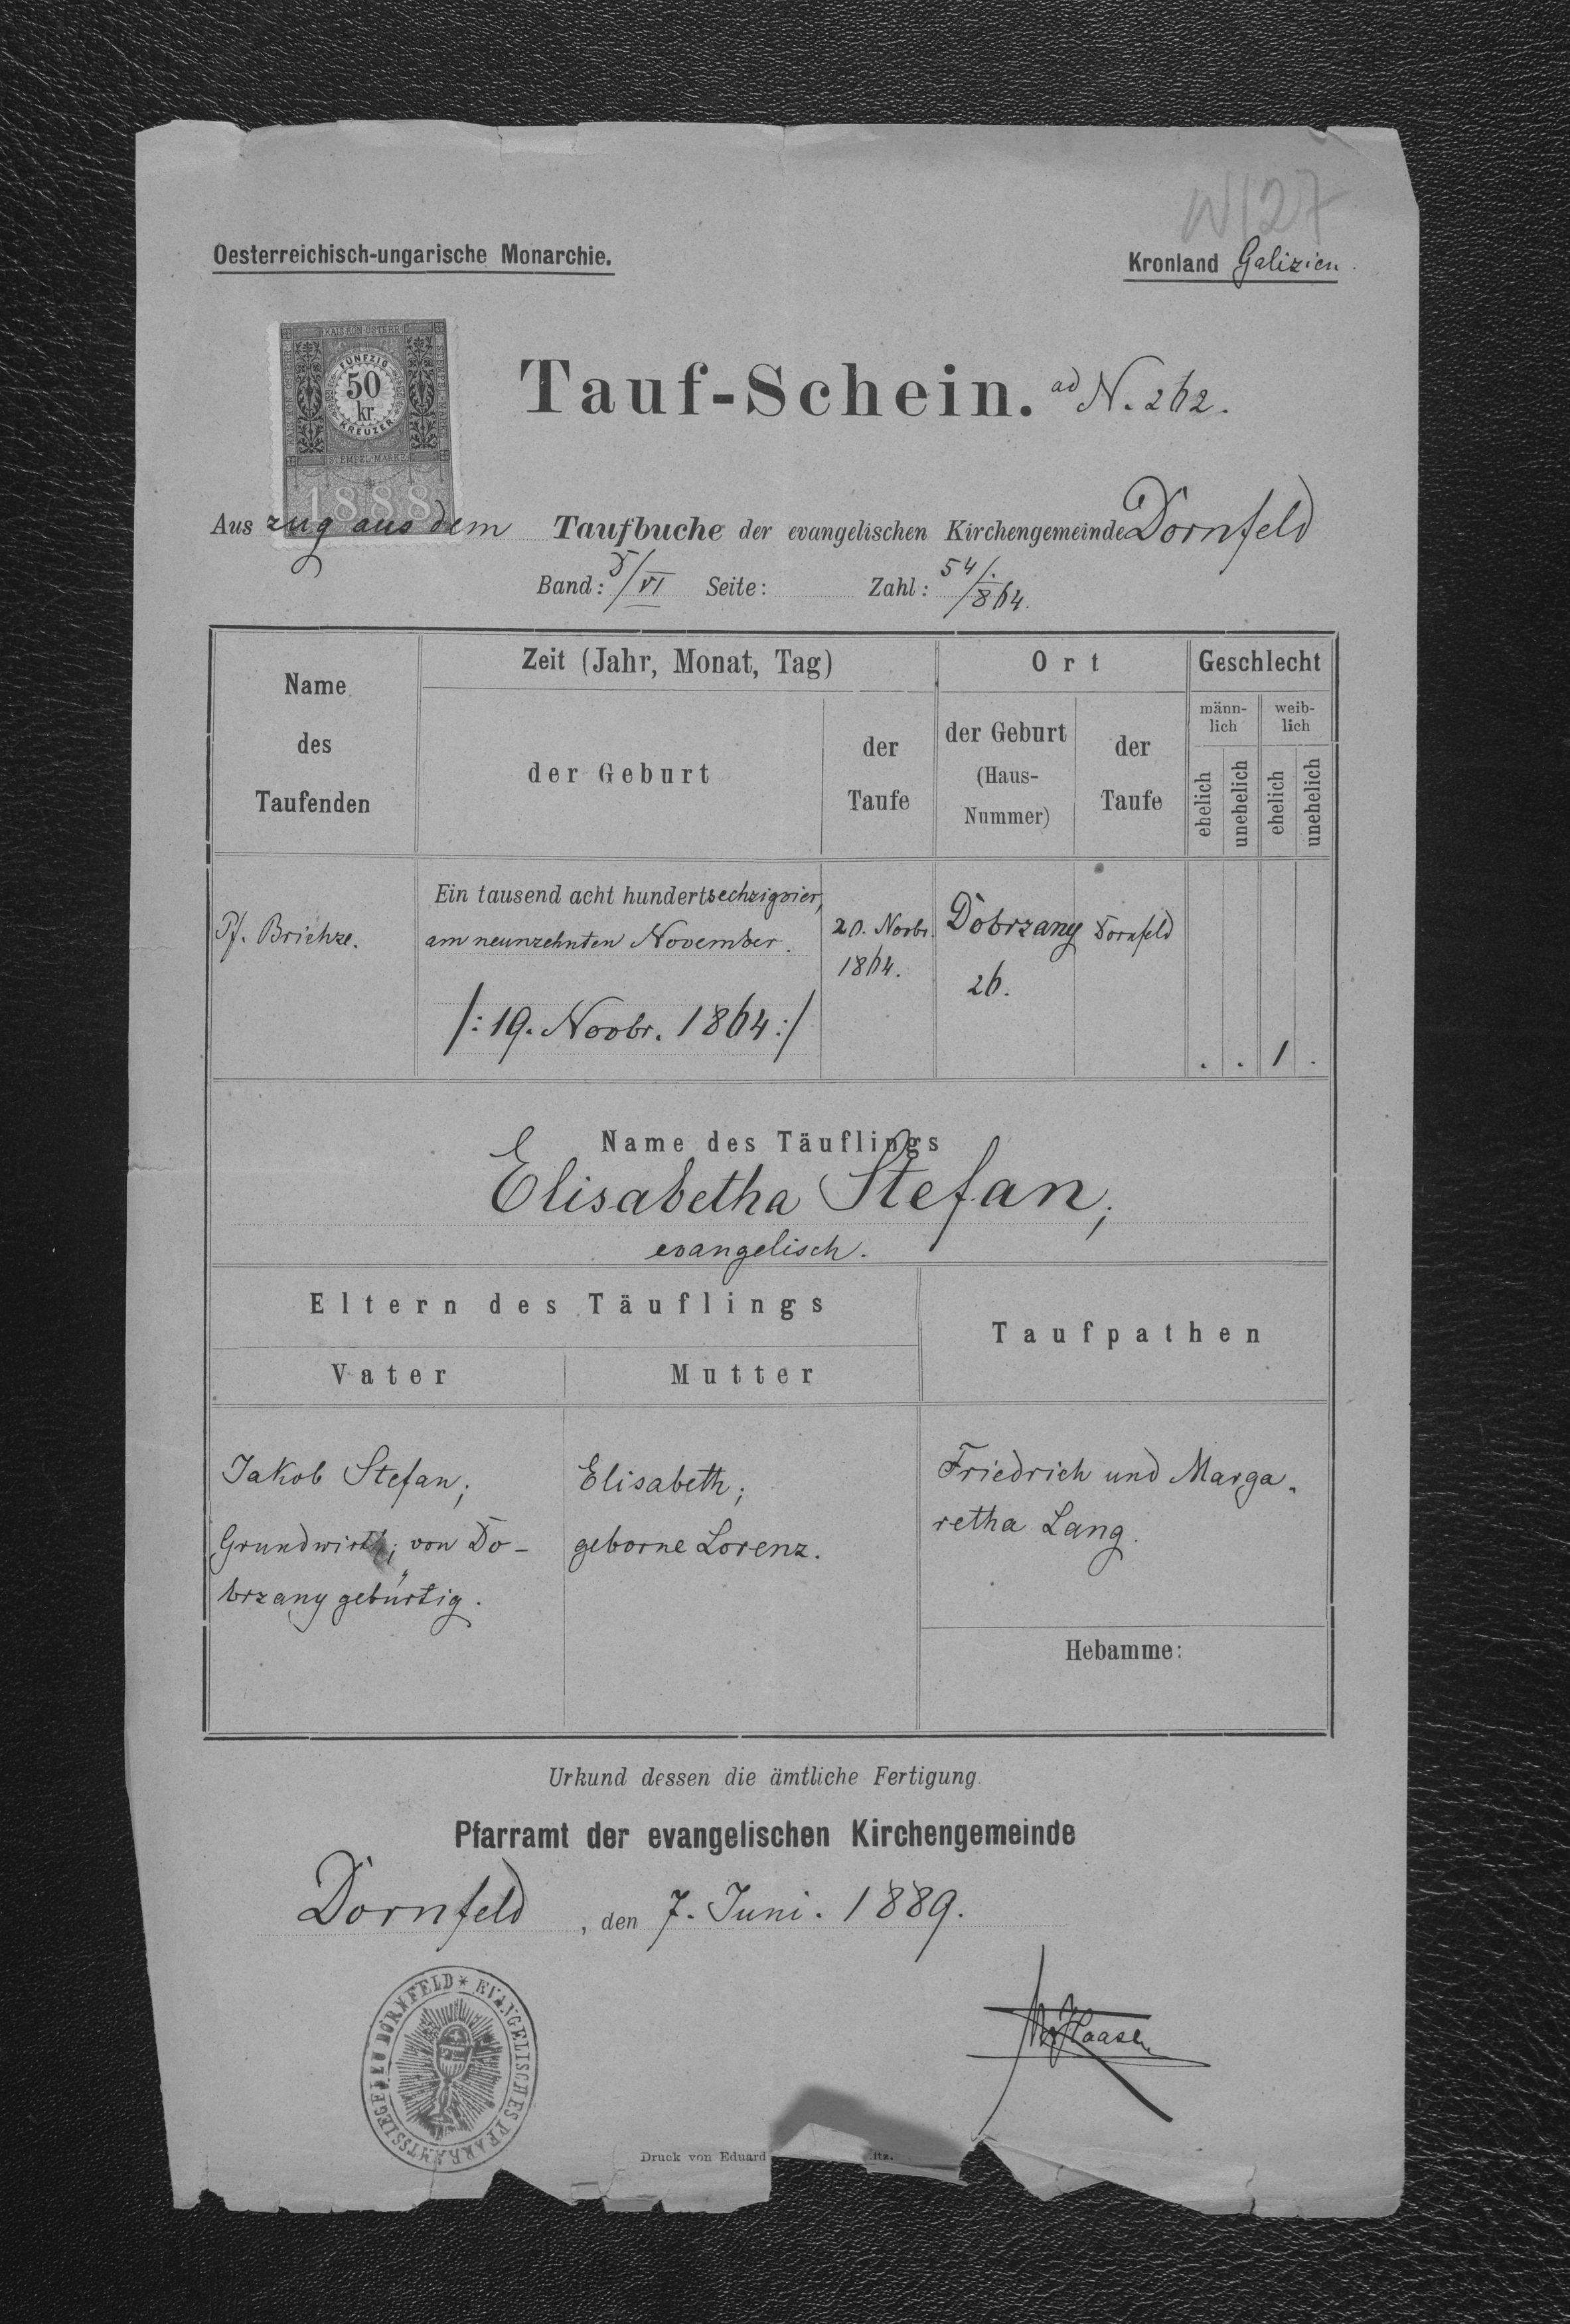 W127
Oesterreichisch-ungarische Monarchie.
Kronland Galizien.
KAIS. KÖN. ÖSTERR.
FÜNFZIG
50
kr.
KREUZER
STEMPEL-MARKE
1888
Tauf-Schein. ad N. 262.
Auszug aus dem Taufbuche der evangelischen Kirchengemeinde Dornfeld
Band: 5/VI Seite: Zahl: 54/864.
Name des Taufenden
Zeit (Jahr, Monat, Tag)
der Geburt
der Taufe
Ort
der Geburt (Haus-Nummer)
der Taufe
Geschlecht
männ-lich
weib-lich
ehelich
unehelich
ehelich
unehelich
Pf. Brichze.
Ein tausend acht hundertsechzigvier,
am neunzehnten November.
/: 19. Novbr. 1864 :/
20. Novbr.
1864.
Dobrzany
26.
Dornfeld
. . 1 .
Name des Täuflings
Elisabetha Stefan,
evangelisch.
Eltern des Täuflings
Vater
Mutter
Taufpathen
Jakob Stefan;
Grundwirth; von Do-
brzany gebürtig.
Elisabeth;
geborne Lorenz.
Friedrich und Marga-
retha Lang.
Hebamme:
Urkund dessen die ämtliche Fertigung.
Pfarramt der evangelischen Kirchengemeinde
Dornfeld, den 7. Juni. 1889.
EVANGELISCHES PFARRAMTSSIEGEL ZU DORNFELD
Haase
Druck von Eduard
itz.